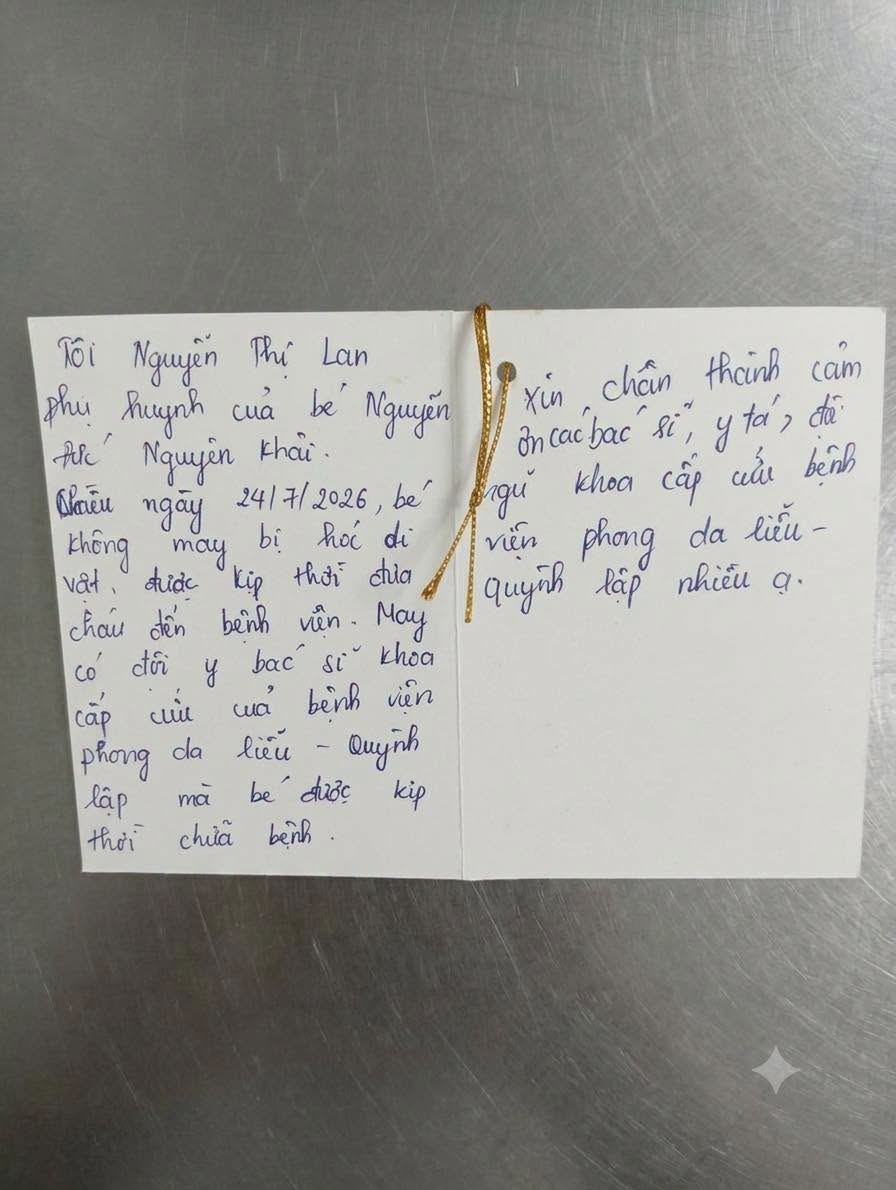 Tôi Nguyễn Thị Lan
phụ huynh của bé Nguyễn
Đức Nguyên Khải.
Chiều ngày 24/7/2026, bé
không may bị hóc dị
vật, được kịp thời đưa
cháu đến bệnh viện. May
có đội y bác sĩ khoa
cấp cứu của bệnh viện
phong da liễu - Quỳnh
lập mà bé được kịp
thời chữa bệnh.
Xin chân thành cảm
ơn các bác sĩ, y tá, đội
ngũ khoa cấp cứu bệnh
viện phong da liễu -
Quỳnh lập nhiều ạ.